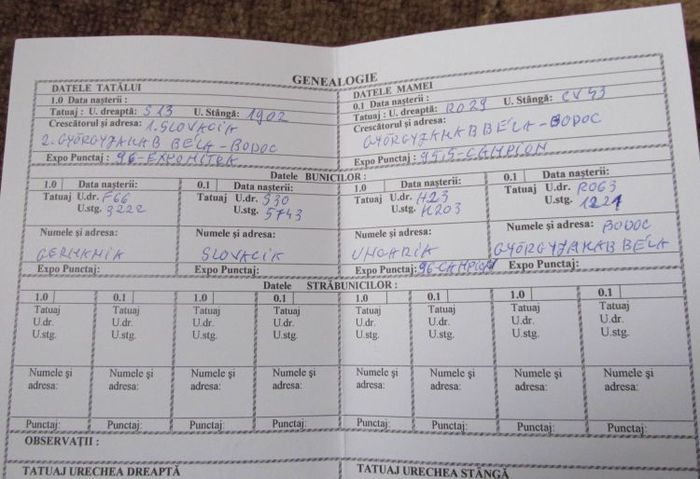 GENEALOGIE
DATELE TATĂLUI
1.0 Data naşterii :
Tatuaj : U. dreaptă: S13 U. Stângă: 1902
Crescătorul şi adresa: 1. SLOVACIA
2. GYÖRGYJAKAB BÉLA - BODOC
Expo Punctaj : 96 -
DATELE MAMEI
0.1 Data naşterii :
Tatuaj : U. dreaptă: RO29 U. Stângă: CV43
Crescătorul şi adresa:
GYÖRGYJAKAB BÉLA - BODOC
Expo Punctaj : 95,5 - CAMPION
Datele BUNICILOR :
1.0 Data naşterii:
Tatuaj U.dr. F66
U.stg. 3222
Numele şi adresa:
GERMANIA
Expo Punctaj:
0.1 Data naşterii:
Tatuaj U.dr. S30
U.stg. 5743
Numele şi adresa:
SLOVACIA
Expo Punctaj:
1.0 Data naşterii:
Tatuaj U.dr. H23
U.stg. K203
Numele şi adresa:
UNGARIA
Expo Punctaj: 96-CAMPION
0.1 Data naşterii:
Tatuaj U.dr. RO63
U.stg. 1221
Numele şi adresa: BODOC
GYÖRGYJAKAB BÉLA
Expo Punctaj:
Datele STRĂBUNICILOR :
1.0 0.1 1.0 0.1 1.0 0.1 1.0 0.1
Tatuaj Tatuaj Tatuaj Tatuaj Tatuaj Tatuaj Tatuaj Tatuaj
U.dr. U.dr. U.dr. U.dr. U.dr. U.dr. U.dr. U.dr.
U.stg. U.stg. U.stg. U.stg. U.stg. U.stg. U.stg. U.stg.
Numele şi Numele şi Numele şi Numele şi Numele şi Numele şi Numele şi Numele şi
adresa: adresa: adresa: adresa: adresa: adresa: adresa: adresa:
Punctaj: Punctaj: Punctaj: Punctaj: Punctaj: Punctaj: Punctaj: Punctaj:
OBSERVAŢII :
TATUAJ URECHEA DREAPTĂ TATUAJ URECHEA STÂNGĂ